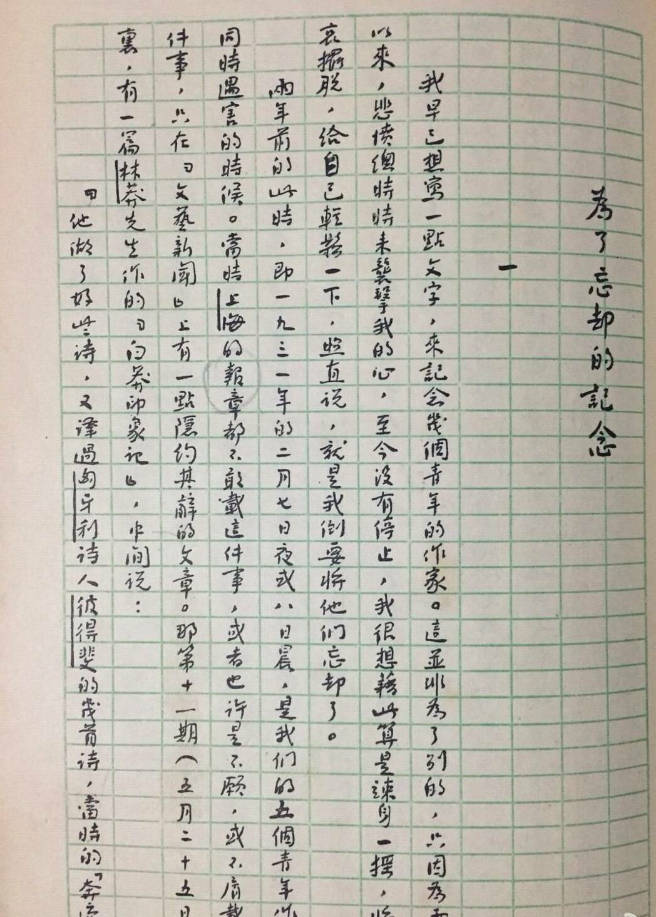 為了忘却的記念
一
我早已想寫一點文字，來記念幾個青年的作家。這並非為了别的，只因為兩
以來，悲憤總時時來襲擊我的心，至今没有停止，我很想藉此算是竦身一摇，將
哀擺脱，給自己輕鬆一下，照直说，就是我倒要將他们忘却了。
兩年前的此時，即一九三一年的二月七日夜或八日晨，是我们的五個青年作
同時遇害的時候。當時上海的報章都不敢載這件事，或者也许是不願，或不屑載
件事，只在「文藝新聞」上有一點隱約其辭的文章。那第十一期（五月二十五日
裏，有一篇林莽先生作的「白莽印象記」，中间说：
「他做了好些诗，又譯過匈牙利诗人彼得斐的幾首诗，當時的「奔流